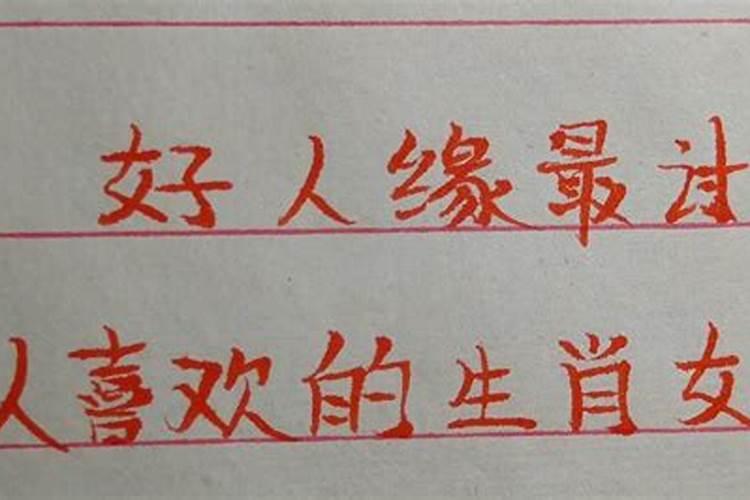 好人缘最讨
人喜欢的生肖女